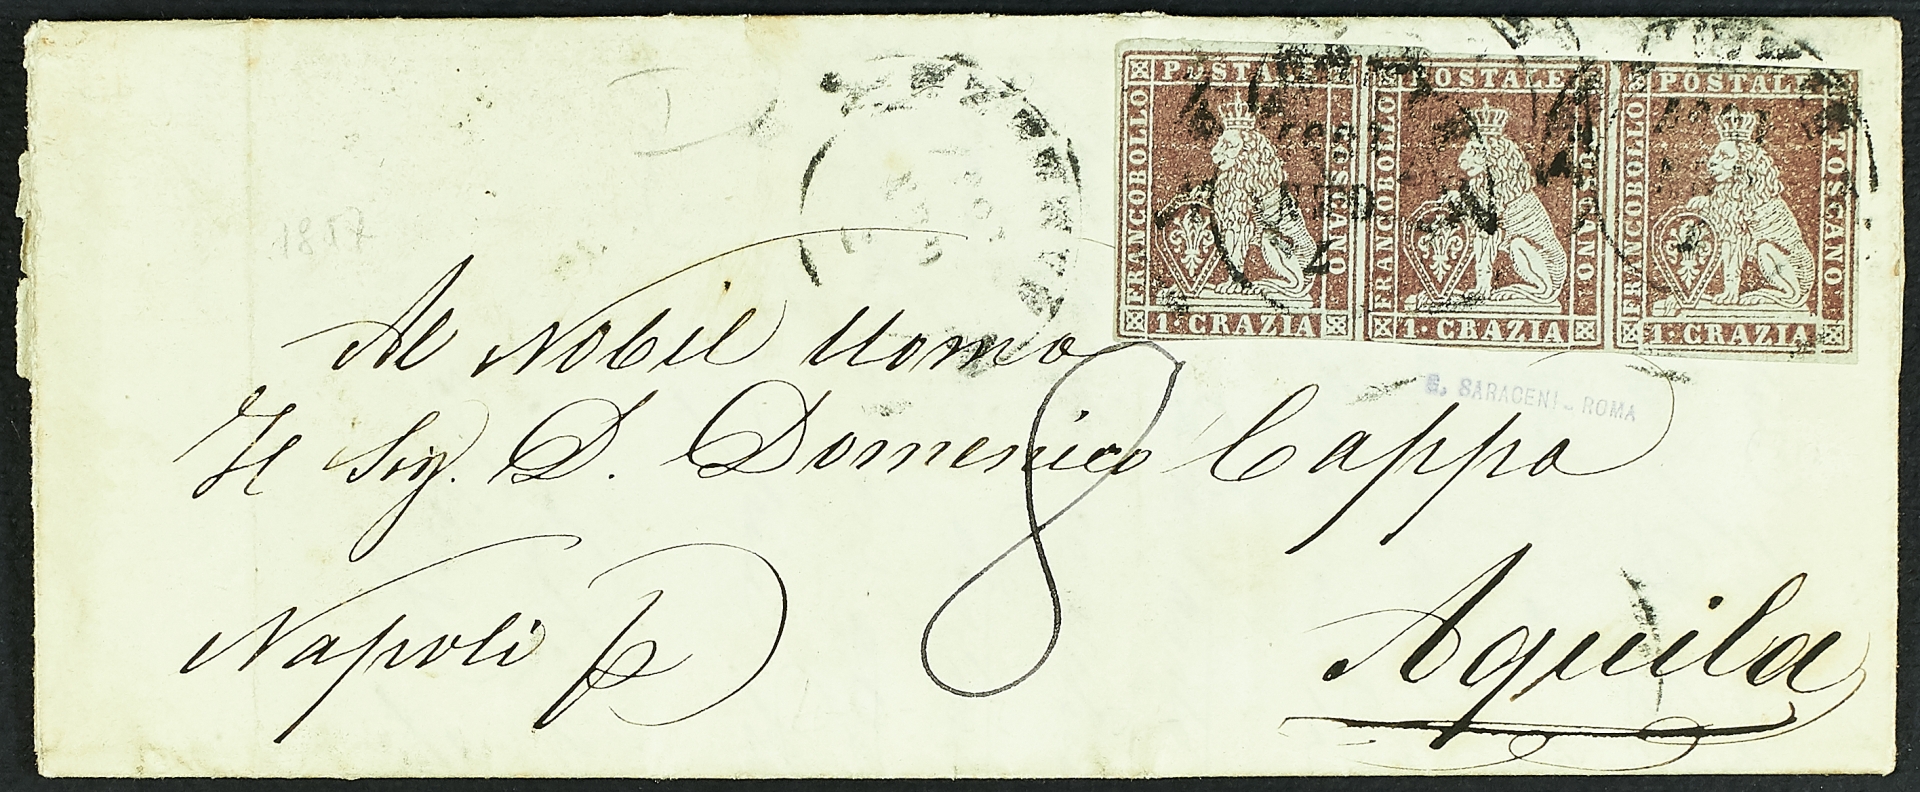 POSTALE POSTALE POSTALE
FRANCOBOLLO TOSCANO FRANCOBOLLO TOSCANO FRANCOBOLLO TOSCANO
1·CRAZIA 1·CRAZIA 1·CRAZIA
1857
Al Nobil Uomo
8
G. SARACENI - ROMA
Il Sig. D. Domenico Cappa
Napoli p
Aquila